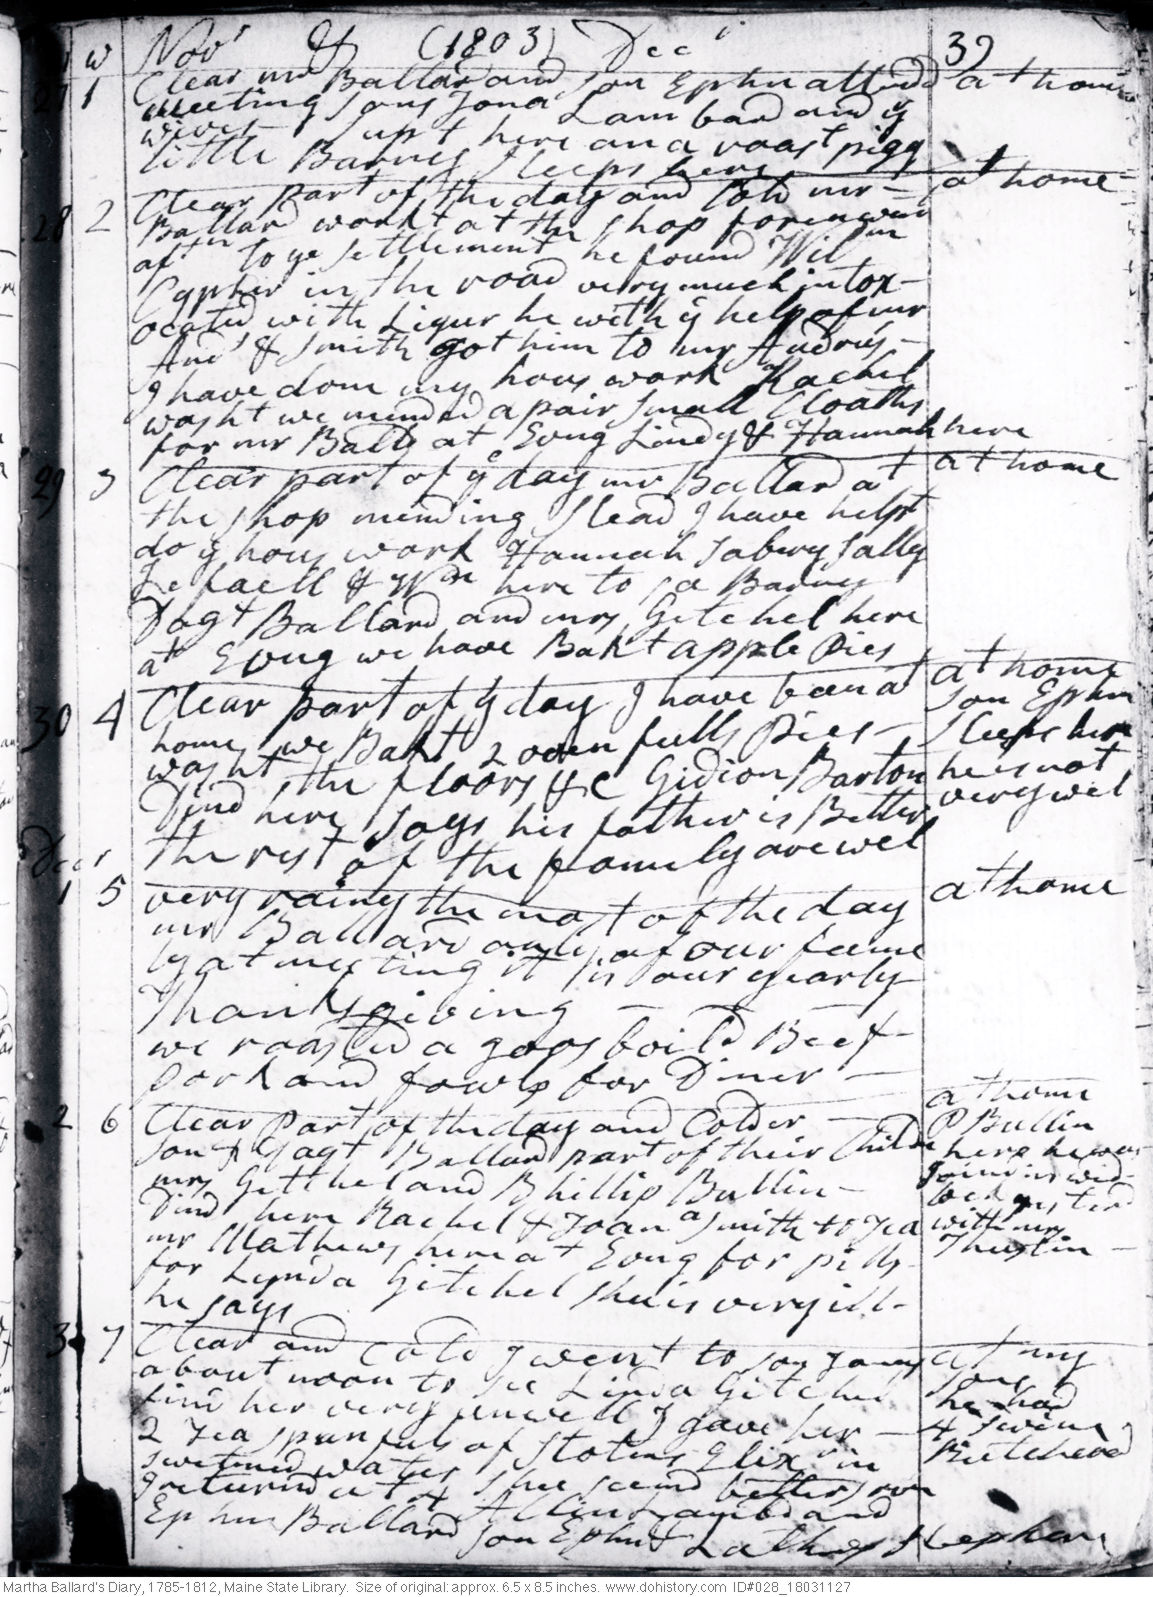 w Novr & (1803) Decr 39
27 1 Clear mr Ballard and son Ephm attend at home
meeting sons Jona Lambard and ye
wives supt here on a roast pigg
little Barney sleeps here
28 2 Clear part of the day and Cold mr — at home
Ballard workt at the shop forenoon
aftn to ye settlement he found Wilm
Cypher in the road very much intox-
ocated with Liqur he with ye help of mr
Ands & Smith got him to mr Andrus —
I have done my hous work Rachel
washt we mended a pair small Cloaths
for mr Balld at Evng Lindy & Hannah here
29 3 Clear part of ye day mr Ballard at at home
the shop mending Slead I have helpt
do ye hous work Hannah Sabery Sally
& Wm here to se Barney
Dagt Ballard and mrs Getchel here
at Evng we have Bakt apple Pies
30 4 Clear part of ye day I have been at at home
home we Bakt 2 oven fulls Pies — son Ephm
washt the floors &C Gidion Barton Sleeps here
Dind here says his father is Better he is not
the rest of the famely are wel very wel
Decr
1 5 very rainy the most of the day at home
mr Ballard only of our fame
ly at meeting it is our yearly
Thanksgiving —
we roasted a goos boild Beef
pork and fowls for Diner —
2 6 Clear part of the day and Colder — at home
son & Dagt Ballard part of their Childn P Bullin
mrs Getthel and Phillip Bullin — here he was
Dind here Rachel & Joana Smith to Tea joind in wid-
mr Mathews here at Evng for pills lock yesterd
for Lynda Gitchel shee is very ill - with mrs
he says Thustin —
3 7 Clear and Cold I went to son Jonas at my
about noon to see Linda Gitchel sons
find her very unwell I gave her — he had
2 Tea spunfuls of Stotens Elixr in 4 Swine
swetned water shee seemd better Butchered
I returnd at 4 Allin Lambd and
Ephm Ballard son Ephm &